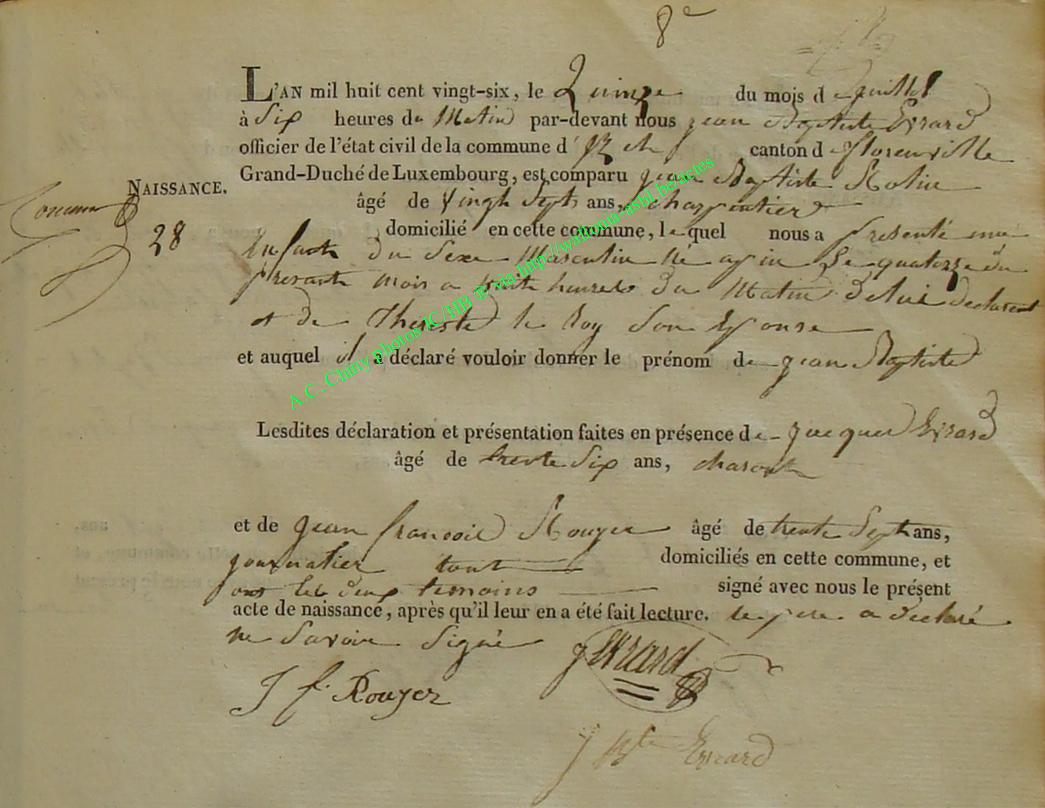 8e
L'AN mil huit cent vingt-six, le Quinze du mois de juillet
à Six heures du Matin par-devant nous jean Baptiste Evrard
officier de l'état civil de la commune d' canton de florenville
Grand-Duché de Luxembourg, est comparu jean Baptiste
NAISSANCE.
âgé de Vingt Sept ans, charpentier
28
domicilié en cette commune, lequel nous a presenté un
enfant du Sexe Masculin né le quatorze du
present mois a huit heures du Matin de lui declarant
et de Therese le Roy Son Epouse
et auquel il a déclaré vouloir donner le prénom de jean Baptiste
A.C. Chiny photos JC/HB © via http://wallonia-asbl.be/actes
Lesdites déclaration et présentation faites en présence de jacques Evrard
âgé de trente Six ans,
et de jean francois Rouyer âgé de trente Sept ans,
tout domiciliés en cette commune, et
ont les deux temoins signé avec nous le présent
acte de naissance, après qu'il leur en a été fait lecture. le pere a déclaré
ne Savoir Signé
jEvrard
J f. Rouyer
J Bte Evrard